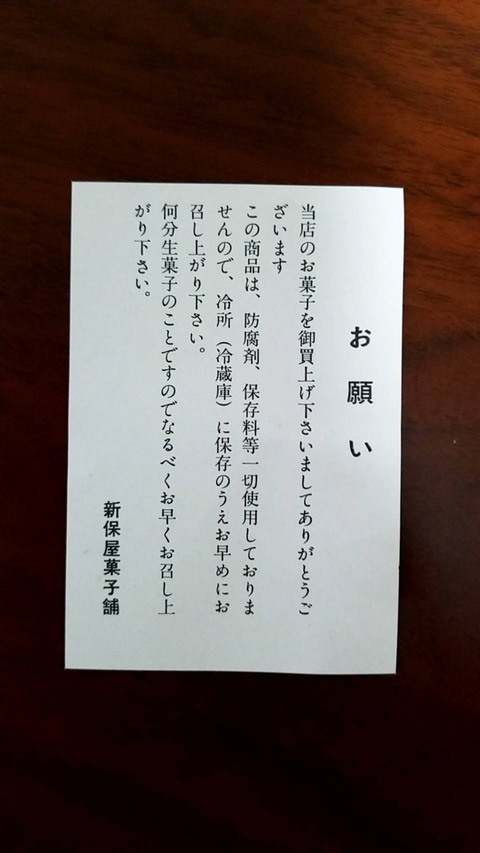 お願い
当店のお菓子を御買上げ下さいましてありがとうご
ざいます
この商品は、防腐剤、保存料等一切使用しておりま
せんので、冷所（冷蔵庫）に保存のうえお早めにお
召し上がり下さい。
何分生菓子のことですのでなるべくお早くお召し上
がり下さい。
新保屋菓子舗